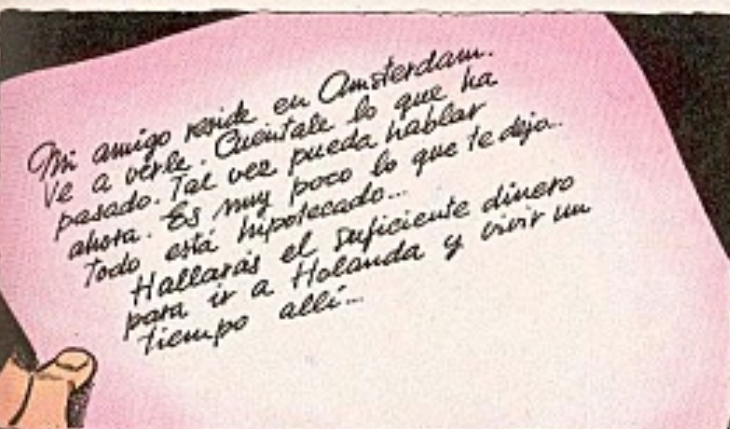 Mi amigo reside en Amsterdam.
Ve a verle. Cuéntale lo que ha
pasado. Tal vez pueda hablar
ahora. Es muy poco lo que te dejo..
Todo está hipotecado...
Hallarás el suficiente dinero
para ir a Holanda y vivir un
tiempo allí...